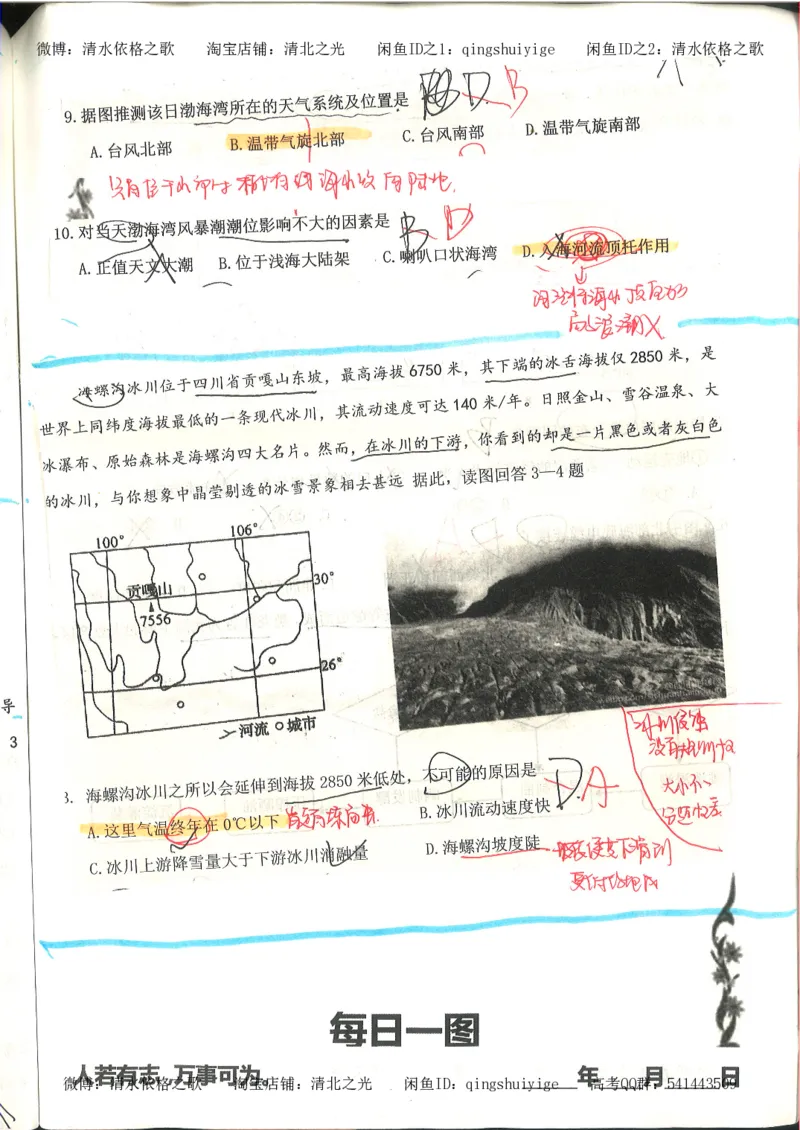 微博：清水依格之歌 淘宝店铺：清北之光 闲鱼ID之1：qingshuiyige 闲鱼ID之2：清水依格之歌
9.据图推测该日渤海湾所在的天气系统及位置是 D B
A.台风北部 B.温带气旋北部 C.台风南部 D.温带气旋南部
10.对当天渤海湾风暴潮潮位影响不大的因素是 B D
A.正值天文大潮 B.位于浅海大陆架 C.喇叭口状海湾 D.入海河流顶托作用
海螺沟冰川位于四川省贡嘎山东坡，最高海拔 6750 米，其下端的冰舌海拔仅 2850 米，是
世界上同纬度海拔最低的一条现代冰川，其流动速度可达 140 米/年。日照金山、雪谷温泉、大
冰瀑布、原始森林是海螺沟四大名片。然而，在冰川的下游，你看到的却是一片黑色或者灰白色
的冰川，与你想象中晶莹剔透的冰雪景象相去甚远 据此，读图回答 3—4 题
100° 106°
30°
贡嘎山
7556
26°
河流 城市
导
3
冰川侵蚀
大小不
3. 海螺沟冰川之所以会延伸到海拔 2850 米低处，不可能的原因是 D A
A.这里气温终年在 0℃以下 B.冰川流动速度快
C.冰川上游降雪量大于下游冰川消融量 D.海螺沟坡度陡
每日一图
人若有志，万事可为。 年 月 日
微博：清水依格之歌 淘宝店铺：清北之光 闲鱼ID：qingshuiyige 高考QQ群：541443509